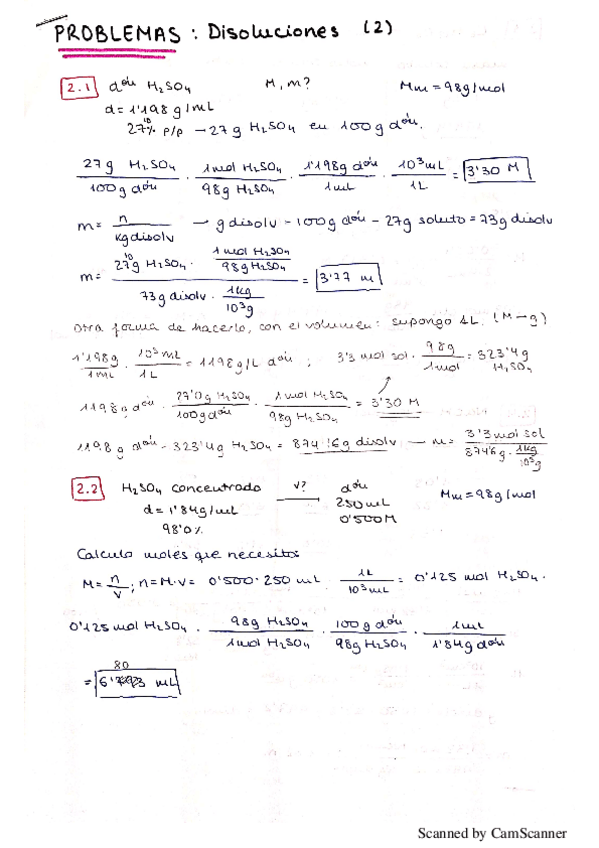 PROBLEMAS: Disoluciones (2)
2.1 dón H₂SO₄ M, m? Mm = 98g/mol
d = 1'198 g/mL
27'0% p/p – 27 g H₂SO₄ en 100g dón.
27 g H₂SO₄ / 100g dón · 1mol H₂SO₄ / 98g H₂SO₄ · 1'198g dón / 1mL · 10³mL / 1L = 3'30 M
m = n / kg disolv → g disolv – 100g dón – 27g soluto = 73g disolv
m = 27'0g H₂SO₄ · 1mol H₂SO₄ / 98g H₂SO₄ / 73g disolv · 1kg / 10³g = 3'77 m
Otra forma de hacerlo, con el volumen: supongo 1L. (M→g)
1'198g / 1mL · 10³mL / 1L = 1198g/L dón ; 3'3 mol sol · 98g / 1mol = 323'4g H₂SO₄
1198g dón · 27'0g H₂SO₄ / 100g dón · 1mol H₂SO₄ / 98g H₂SO₄ = 3'30 M
1198 g dón – 323'4g H₂SO₄ = 874'6g disolv — m = 3'3mol sol / 874'6g · 1kg / 10³g
2.2 H₂SO₄ concentrado V? → dón Mm = 98g/mol
d = 1'84g/mL 250mL
98'0% 0'500M
Calculo moles que necesito
M = n/V ; n = M·V = 0'500·250 mL · 1L / 10³mL = 0'125 mol H₂SO₄.
0'125 mol H₂SO₄ · 98g H₂SO₄ / 1mol H₂SO₄ · 100g dón / 98g H₂SO₄ · 1mL / 1'84g dón
80
= 6' mL
Scanned by CamScanner